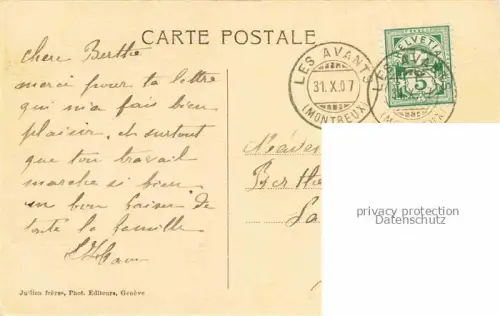 CARTE POSTALE
LES AVANTS
31.X.07
(MONTREUX)
HELVETIA
5
LES AVANTS
(MONTREUX)
cher Berthe
merci pour ta lettre
qui m'a fais bien
plaisir et surtout
que ton travail
marche si bien
un bon baiser de
toute la famille
Berthe
privacy protection
Datenschutz
Jullien frères, Phot. Editeurs, Genève